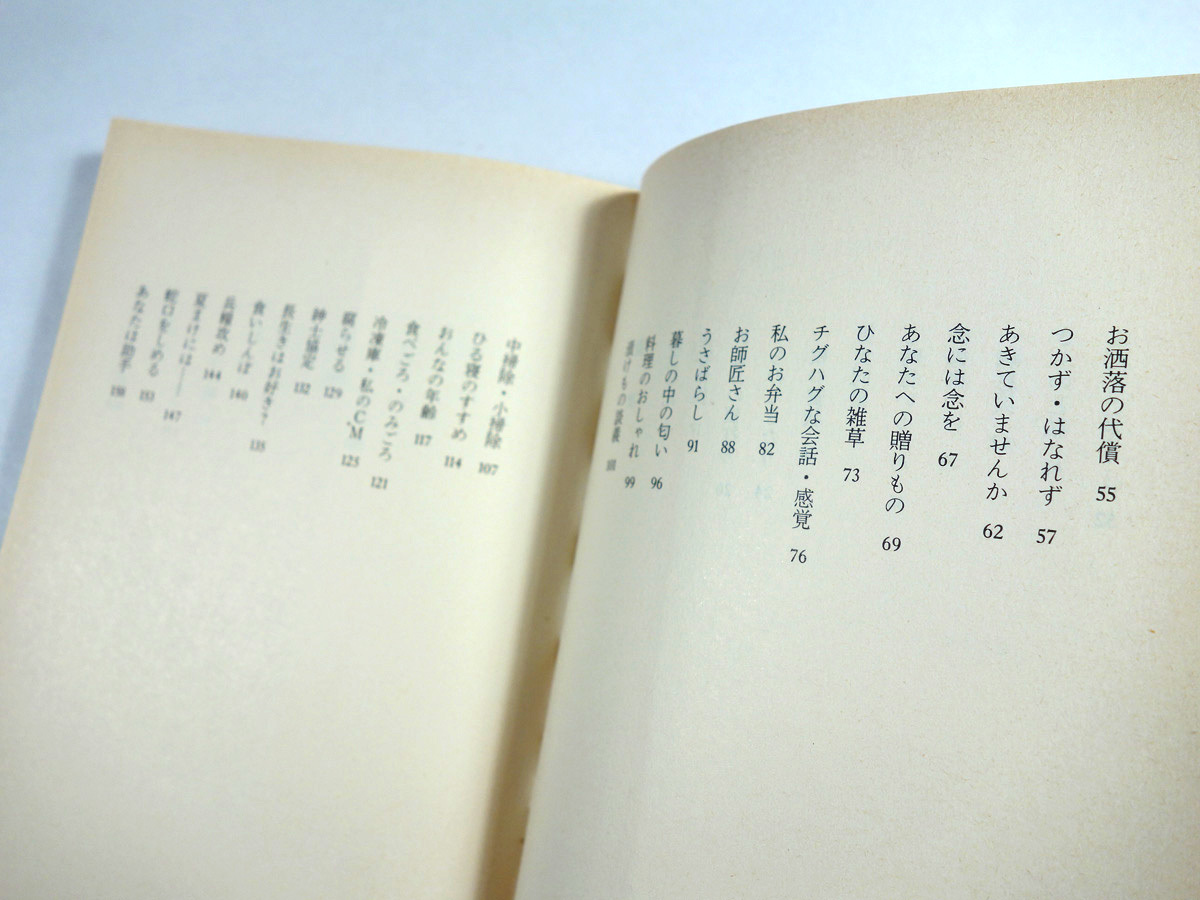 お洒落の代償 55
つかず・はなれず 57
あきていませんか 62
念には念を 67
あなたへの贈りもの 69
ひなたの雑草 73
チグハグな会話・感覚 76
私のお弁当 82
お師匠さん 88
うさばらし 91
暮しの中の匂い 96
料理のおしゃれ 99
漬けもの談義 101
中掃除・小掃除 107
ひる寝のすすめ 114
おんなの年齢 117
食べごろ・のみごろ 121
冷凍庫・私のC,M 125
腐らせる 129
紳士協定 132
長生きはお好き? 135
食いしんぼ 140
兵糧攻め 144
夏まけには―― 147
蛇口をしめる 151
あなたは助手